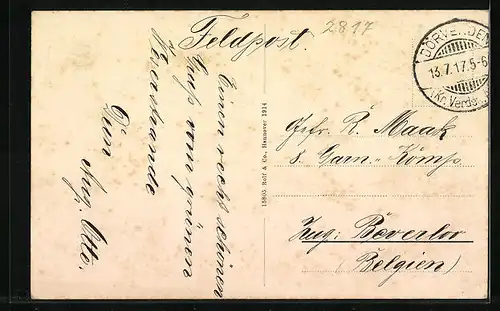 2817
Feldpost.
DÖRVERDEN
13.7.17.5-6
(Kr. Verden
Einen recht schönen
Gruß vom grünen
Weserstrande
Dein
Aug. Otto.
15805 Rolf & Co., Hannover 1914
Gefr. R. Maak
s. Garn.-Komp.
Zug: Beverloo
(Belgien)